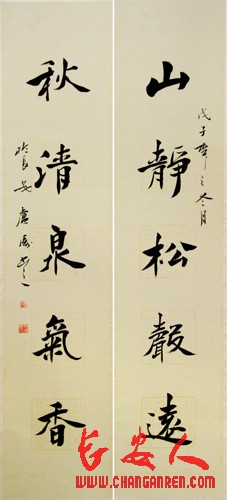 山靜松聲遠
戊子年之冬月
秋清泉氣香
於長安
長安人
WWW.CHANGANREN.COM